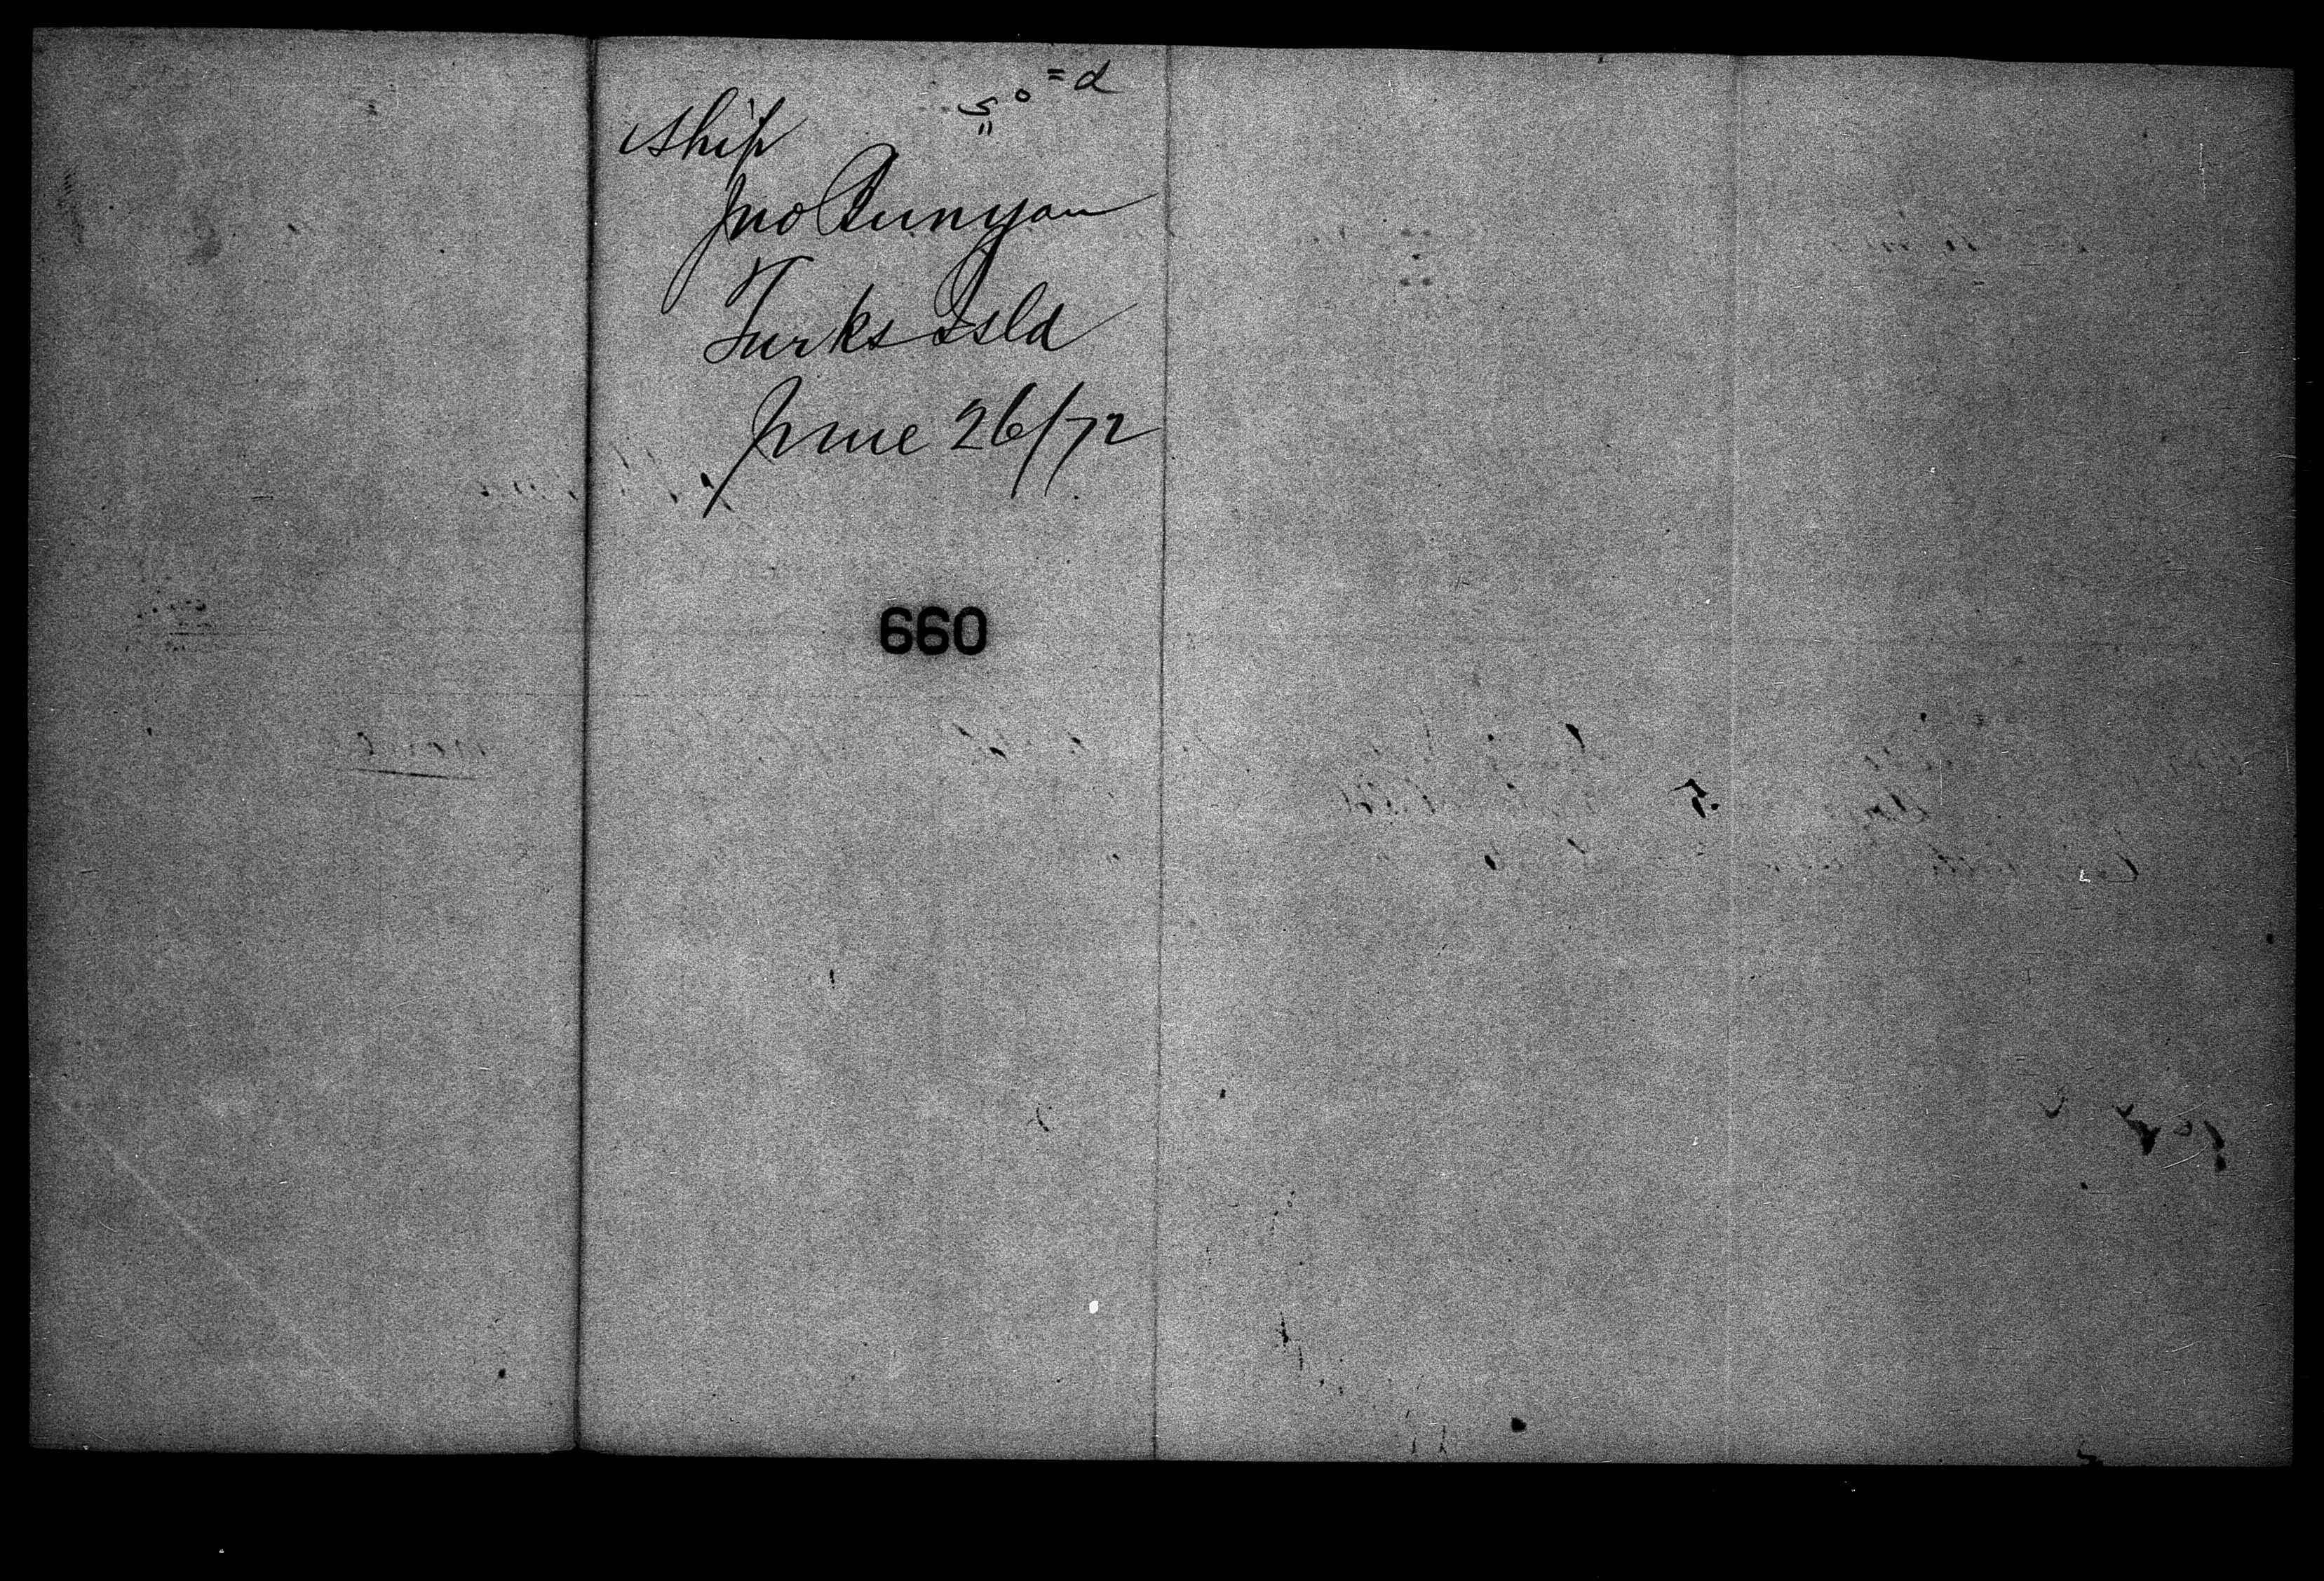 Ship
Jno Bunyan
Turks Isld
June 26/72
660